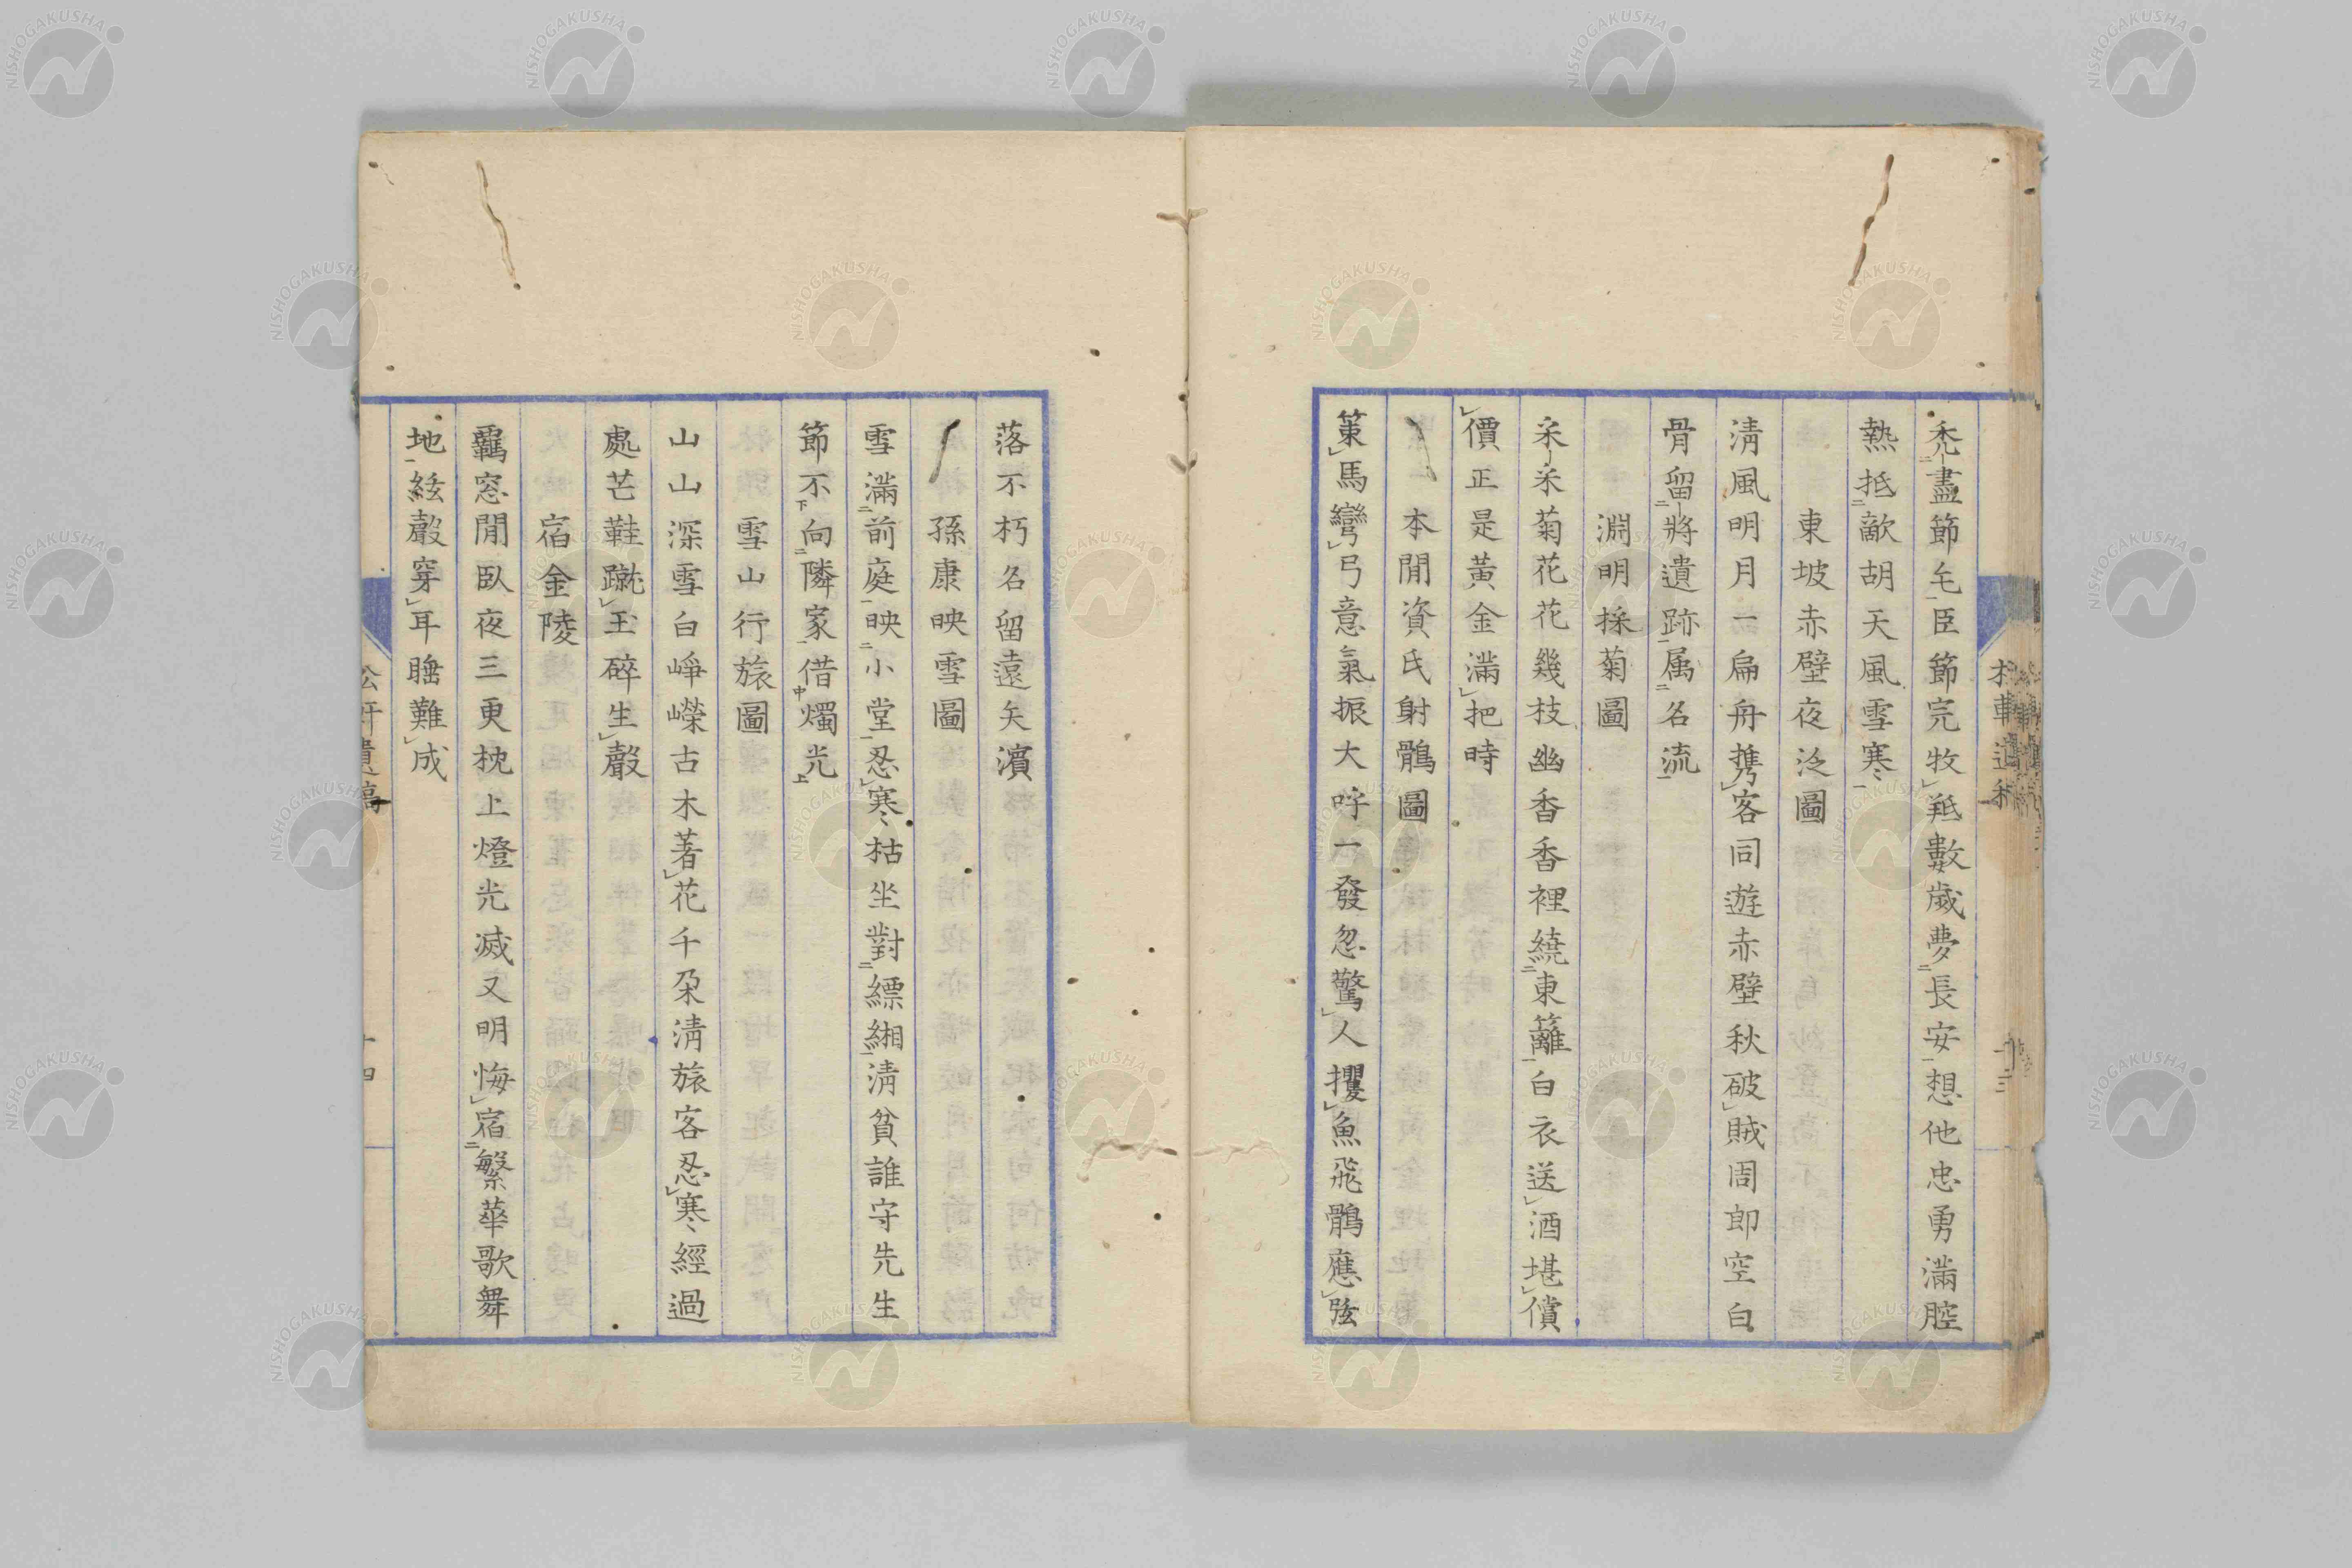 禿盡節毛臣節完牧羝數歲夢長安想他忠勇滿腔
熱抵敵胡天風雪寒
東坡赤壁夜泛圖
淸風明月一扁舟携客同遊赤壁秋破賊周郎空白
骨留將遺跡属名流
淵明採菊圖
采采菊花花幾枝幽香香裡繞東籬白衣送酒堪償
價正是黃金滿把時
本間資氏射鶻圖
策馬彎弓意氣振大呼一發忽驚人攫魚飛鶻應弦
落不朽名留遠矢濱
孫康映雪圖
雪滿前庭映小堂忍寒枯坐對縹緗淸貧誰守先生
節不向隣家借燭光
雪山行旅圖
山山深雪白崢嶸古木著花千朶淸旅客忍寒經過
處芒鞋蹴玉碎生聲
宿金陵
羈窓閒臥夜三更枕上燈光滅又明悔宿繁華歌舞
地絃聲穿耳睡難成
十四
NISHOGAKUSHA